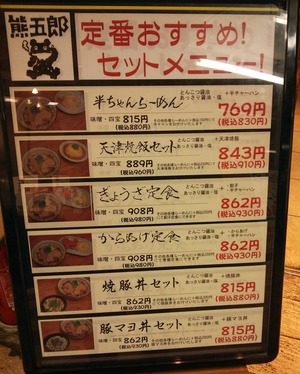 熊五郎
定番おすすめ!
セットメニュー!
半ちゃんらーめん
とんこつ醤油
あっさり醤油・塩
+半チャーハン
769円
(税込830円)
味噌・四宝 815円
(税込880円)
天津焼飯セット
とんこつ醤油
あっさり醤油・塩
+天津焼飯
843円
(税込910円)
味噌・四宝 889円
(税込960円)
ぎょうざ定食
とんこつ醤油
あっさり醤油・塩
+餃子
+半チャーハン
862円
(税込930円)
味噌・四宝 908円
(税込980円)
からあげ定食
とんこつ醤油
あっさり醤油・塩
+からあげ
+半チャーハン
862円
(税込930円)
味噌・四宝 908円
(税込980円)
焼豚丼セット
とんこつ醤油
あっさり醤油・塩
+焼豚丼
815円
(税込880円)
味噌・四宝 862円
(税込930円)
豚マヨ丼セット
とんこつ醤油
あっさり醤油・塩
+豚マヨ丼
815円
(税込880円)
味噌・四宝 862円
(税込930円)